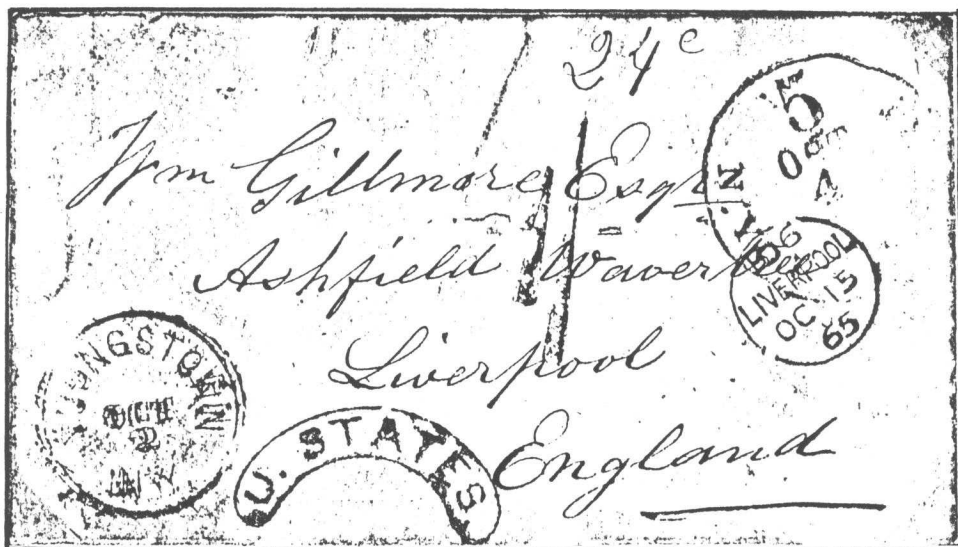 24c
Wm Gillmore Esqr
Ashfield Wavertree
Liverpool
England
5
OCT
4
N.Y.
LIVERPOOL
OC 15
65
OCT
2
N.Y.
U. STATES